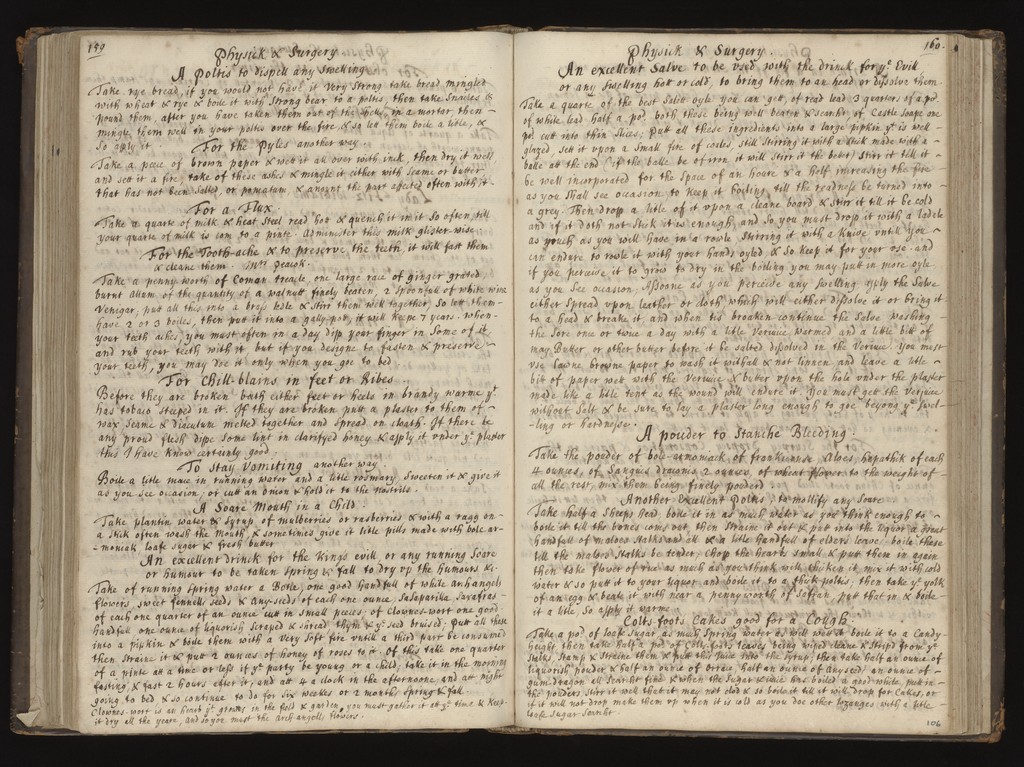 159
Physick & Surgery
A Poltis to dispell any Swelling
Take rye bread, if you would not have it very strong take bread mingled
with wheat & rye & boile it with strong bear to a poltis, then take Snailes &
pound them, after you have taken them out of the shells, in a morter then
mingle them well in your poltis over the fire, & so lett them boile a litle, &
So apply it
For the Pyles another way
Take a peece of brown paper & wett it all over with inck, then dry it well
and sett it a fire, take of these ashes & mingle it either with Seame or butter
that has not been Salted, or pomatum & anoynt the part affected often with it
For a Flux
Take a quarte of milk & heat Steel read hott & quench it in it so often, till
your quarte of milk is com to a pinte. Administer this milk glister wise
For the Tooth-ache & to preserve the teeth, it will fast them
& cleane them. Mrs Peacok.
Take a penny worth of Coman treacle, one large race of ginger grated
burnt Allum of the quantity of a walnutt finely beaten, 2 Spoonfull of white wine
Venigar, putt all this into a brass ledle & Stirr them well together, So lett them
have 2 or 3 boiles, then putt it into a gally-pot, it will keepe 7 years. when
your teeth aches, you must often in a day dipp your finger in some of it
and rub your teeth with it but if you designe to fasten & preserve
your teeth, you may Use it only when you goe to bed
For Chill-blains in feet or Kibes
Before they are broken bath either feet or heels in brandy warme yt
has tobaco steeped in it. If they are broken putt a plaster to them of
wax Seame & diaculum melted together and Spread on cloath. If there be
any proud flesh dipe Some lint in clarifyed honey & apply it under ye plaster
this I have know certainly good
To Stay Vomiting another way
Boile a litle mace in running water and a litle rosmary Sweeten it & give it
as you see occasion, or cutt an onion & hold it to the nostrils
A Soare Mouth in a Child
Take plantin water & Syrup of mulberries or rasberries & with a ragg on
a Stik often wash the Mouth, & sometimes give it litle pills made with bole ar-
moniak loafe sugar & fresh butter
An excellent drinck for the Kings evill, or any running Soare
or humour to be taken Spring & fall to dry up the humours &c
Take of running Spring water a Botle, one good handfull of white archangels
flowers, sweet fennell seeds & Any-seeds of each one ounce, Sasaparilla Saxafras
of each one quarter of an ounce cutt in Small peeces, of Clownes-wort one good
handfull one ounce of liquorish scraped & shread thyn & ye seed bruised; putt all these
into a pipkin & boile them with a very Soft fire untill a third part be consumed
then straine it & putt 2 ounces of honey of roses to it. of this take one quarter
of a pinte at a time or less if ye party be young or a child, take it in the morning
fasting, & fast 2 hours after it, and att 4 a clock in the afternoone and att night
going to bed & so continue to do for six weekes or 2 months Spring & fall
Clownes-wort is an hearb yt growes in the feild & garden, you must gather it att ye time & keep
it dry all the yeare, and so you must the arch-angell flowers
160.
Physick & Surgery
An excellent Salve to be used with the drinck for ye Evill
or any Swelling hott or cold, to bring them to an head or dissolve them
Take a quarte of the best Sallet oyle you can gett, of read lead 3 quarters of a pd
of white lead half a pd. both these being well beaten & searsed, of Castle soape one
pd. cutt into thin slices; Putt all these ingredients into a large pipkin yt is well
glazed sett it upon a Small fire of coales, still stirring it with a stick made with a
balle att the end (if the balle be of iron it will stirr it the better) stirr it till it
be well incorporated for the space of an houre & a half increasing the fire
as you shall see occasion to keep it boyling till the readness be turned into
a grey. Then dropp a litle of it upon a cleane board & stirr it till it be cold
and if it doth not stick it is enough, and so you must drop it with a ladele
as much as you will have in a rowle stirring it with a knive untill you
can endure to rowle it with your hands oyled & so keep it for your use. and
if you perceive it to grow to dry in the boiling you may putt in more oyle
as you see occasion. Assoone as you perceive any swelling apply the Salve
either spread upon leather or cloth which will either dissolve it or bring it
to a head & breake it, and when tis broaken continue the Salve washing
the sore once or twice a day with a litle Verjuice warmed and a litle bitt of
may Butter or other butter before it be salted dissolved in the Verjuice. You must
use Cawne browne paper to wash it withall & not linnen and leave a litle
bit of paper wett with the Verjuice & butter upon the hole under the plaster
made like a litle tent as the wound will endure it. You must gett the Verjuice
without Salt & be sure to lay a plaster long enough to goe beyong ye Swel-
ling or hardnesse.
A pouder to Stanche Bleeding.
Take the pouder of bole-armoniack, of frankinsense Aloes, hepathik of each
4 ounces, of Sanguis draconis 2 ounces, of wheat flower to the weight of
all the rest, mix them being finely pouderd
Another Excellent Poltis to mollify any Soare
Take half a Sheeps head boile it in as much water as you think enough to
boile it till the bones come out, then straine it out & put into the liquor a great
handfull of malows Stalks and all & a litle handfull of elders leaves boile these
till the malows Stalks be tender, Chop the hearbs small & putt them in again
then take flower of rice as much as you think will thicken it, mix it with cold
water & so putt it to your liquor and boile it to a thick poltis, then take ye yolk
of an egg & beate it with near a pennyworth of Saffran, put that in & boile
it a litle, So apply it warme
Colts-foots Cakes good for a Cough
Take a pd of loafe Sugar as much Spring water as will wett it boile it to a Candy
height then take half a pd of Colts foots leaves being wiped cleane & Striped from ye
Stalks Stamp & Straine them & putt this Juice into the Syrup, then take half an ounce of
liquorish pouder, & half an ounce of orrice, half an ounce of Anyseed, an ounce of
gum-dragon all Searsht fine & when the Sugar & Juice has boiled a good while, putt in
the pouders, stirr it well that it may not clod & so boile it till it will drop for Cakes, or
if it will not drop make them up when it is cold as you doe other lozanges with a litle
loafe Sugar Searsht
106